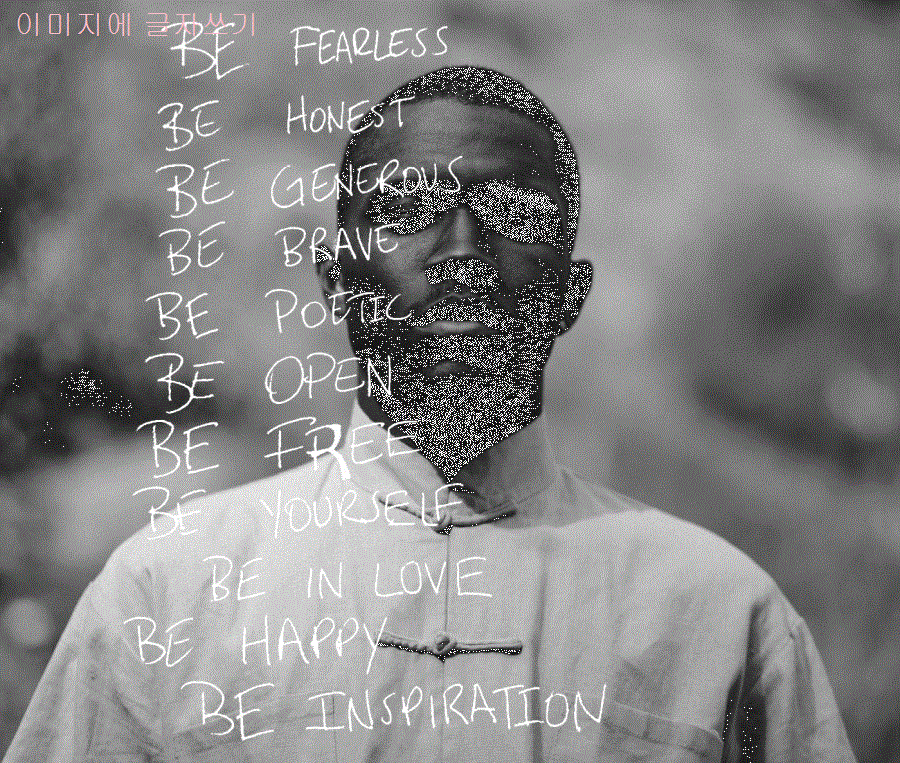 이미지에 글자쓰기
BE FEARLESS
BE HONEST
BE GENEROUS
BE BRAVE
BE POETIC
BE OPEN
BE FREE
BE YOURSELF
BE IN LOVE
BE HAPPY
BE INSPIRATION